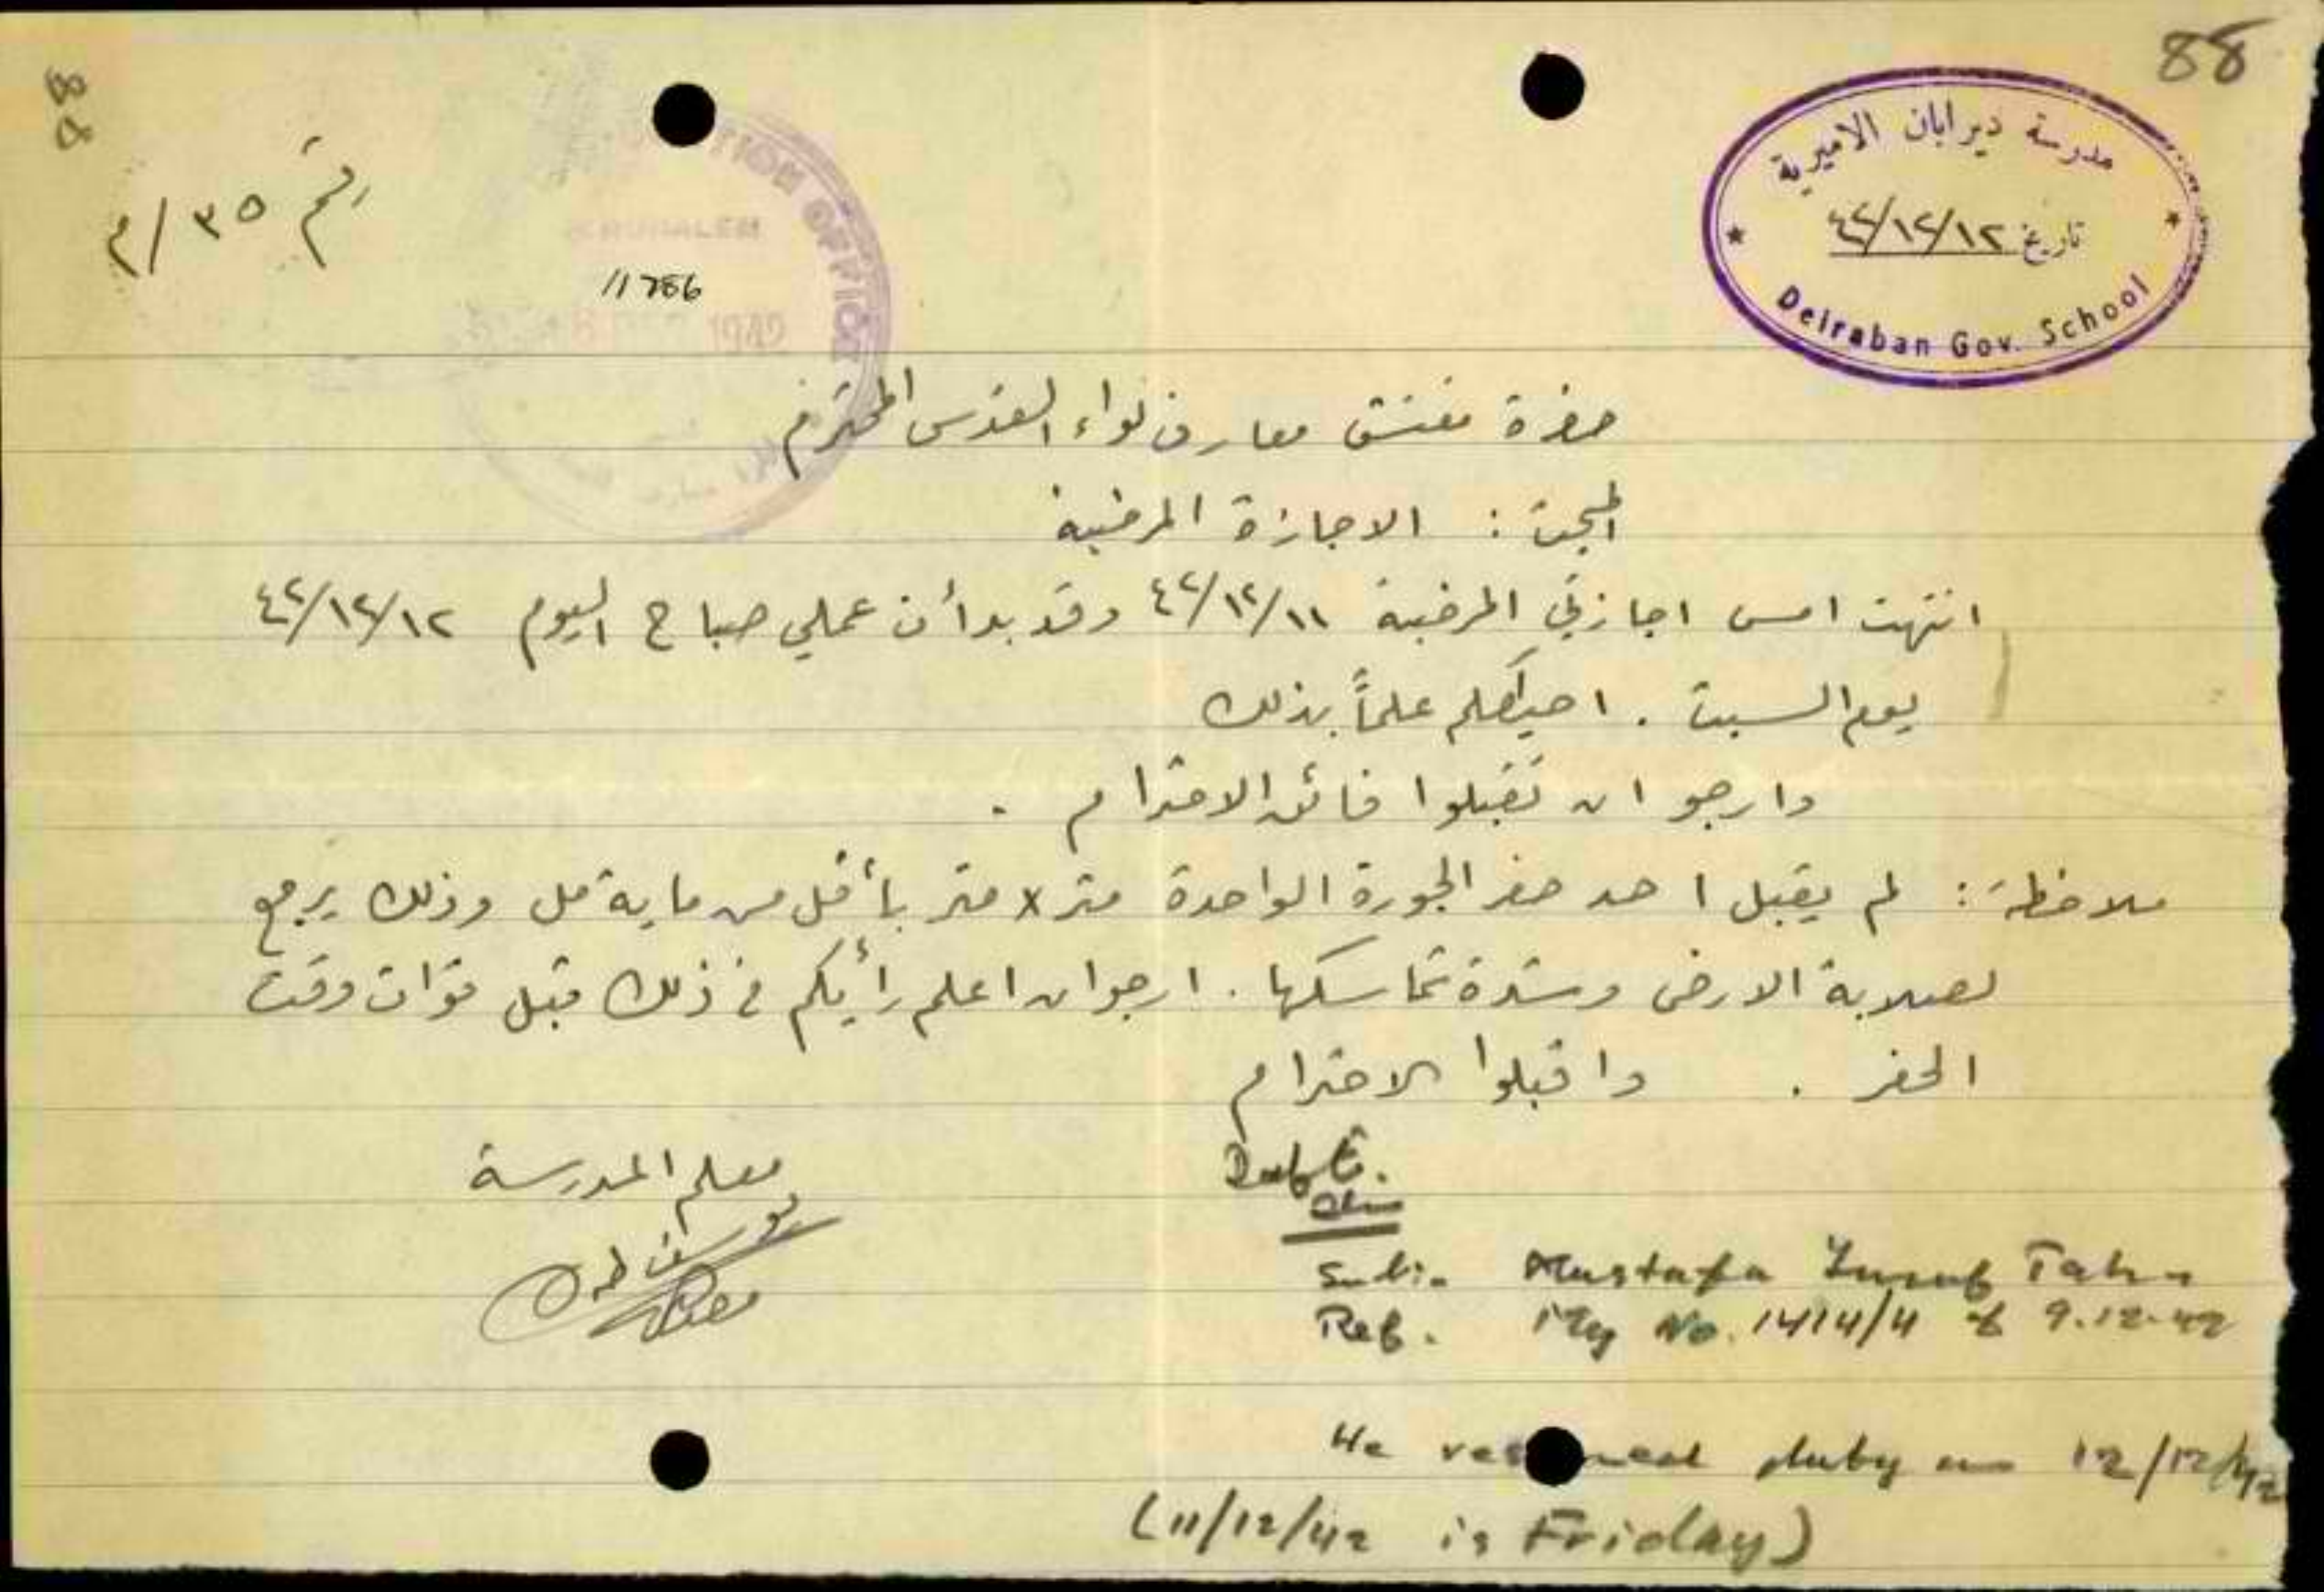 88
88
مدرسة ديرابان الاميرية
تاريخ ٤٢/١٢/١٢
Deiraban Gov. School
رقم ٣٥/م
TION OFFICE
JERUSALEM
11786
1942
حضرة مفتش معارف لواء القدس المحترم
المبحث : الاجازة المرضية
انتهت امس اجازتي المرضية ٤٢/١٢/١١ وقد بدأت عملي صباح اليوم ٤٢/١٢/١٢
يوم السبت . احيطكم علماً بذلك
وارجو ان تقبلوا فائق الاحترام .
ملاحظة : لم يقبل احد حفر الجورة الواحدة متر x متر بأقل من ماية مل وذلك يرجع
لصلابة الارض وشدة تماسكها . ارجو ان اعلم رأيكم في ذلك قبل فوات وقت
الحفر . واقبلوا الاحترام
معلم المدرسة
يوسف طه
مصطفى
D of E.
Subj. Mustafa Yusuf Taha
Ref. My No. 1414/4 of 9.12.42
He resumed duty on 12/12/42
(11/12/42 is Friday)